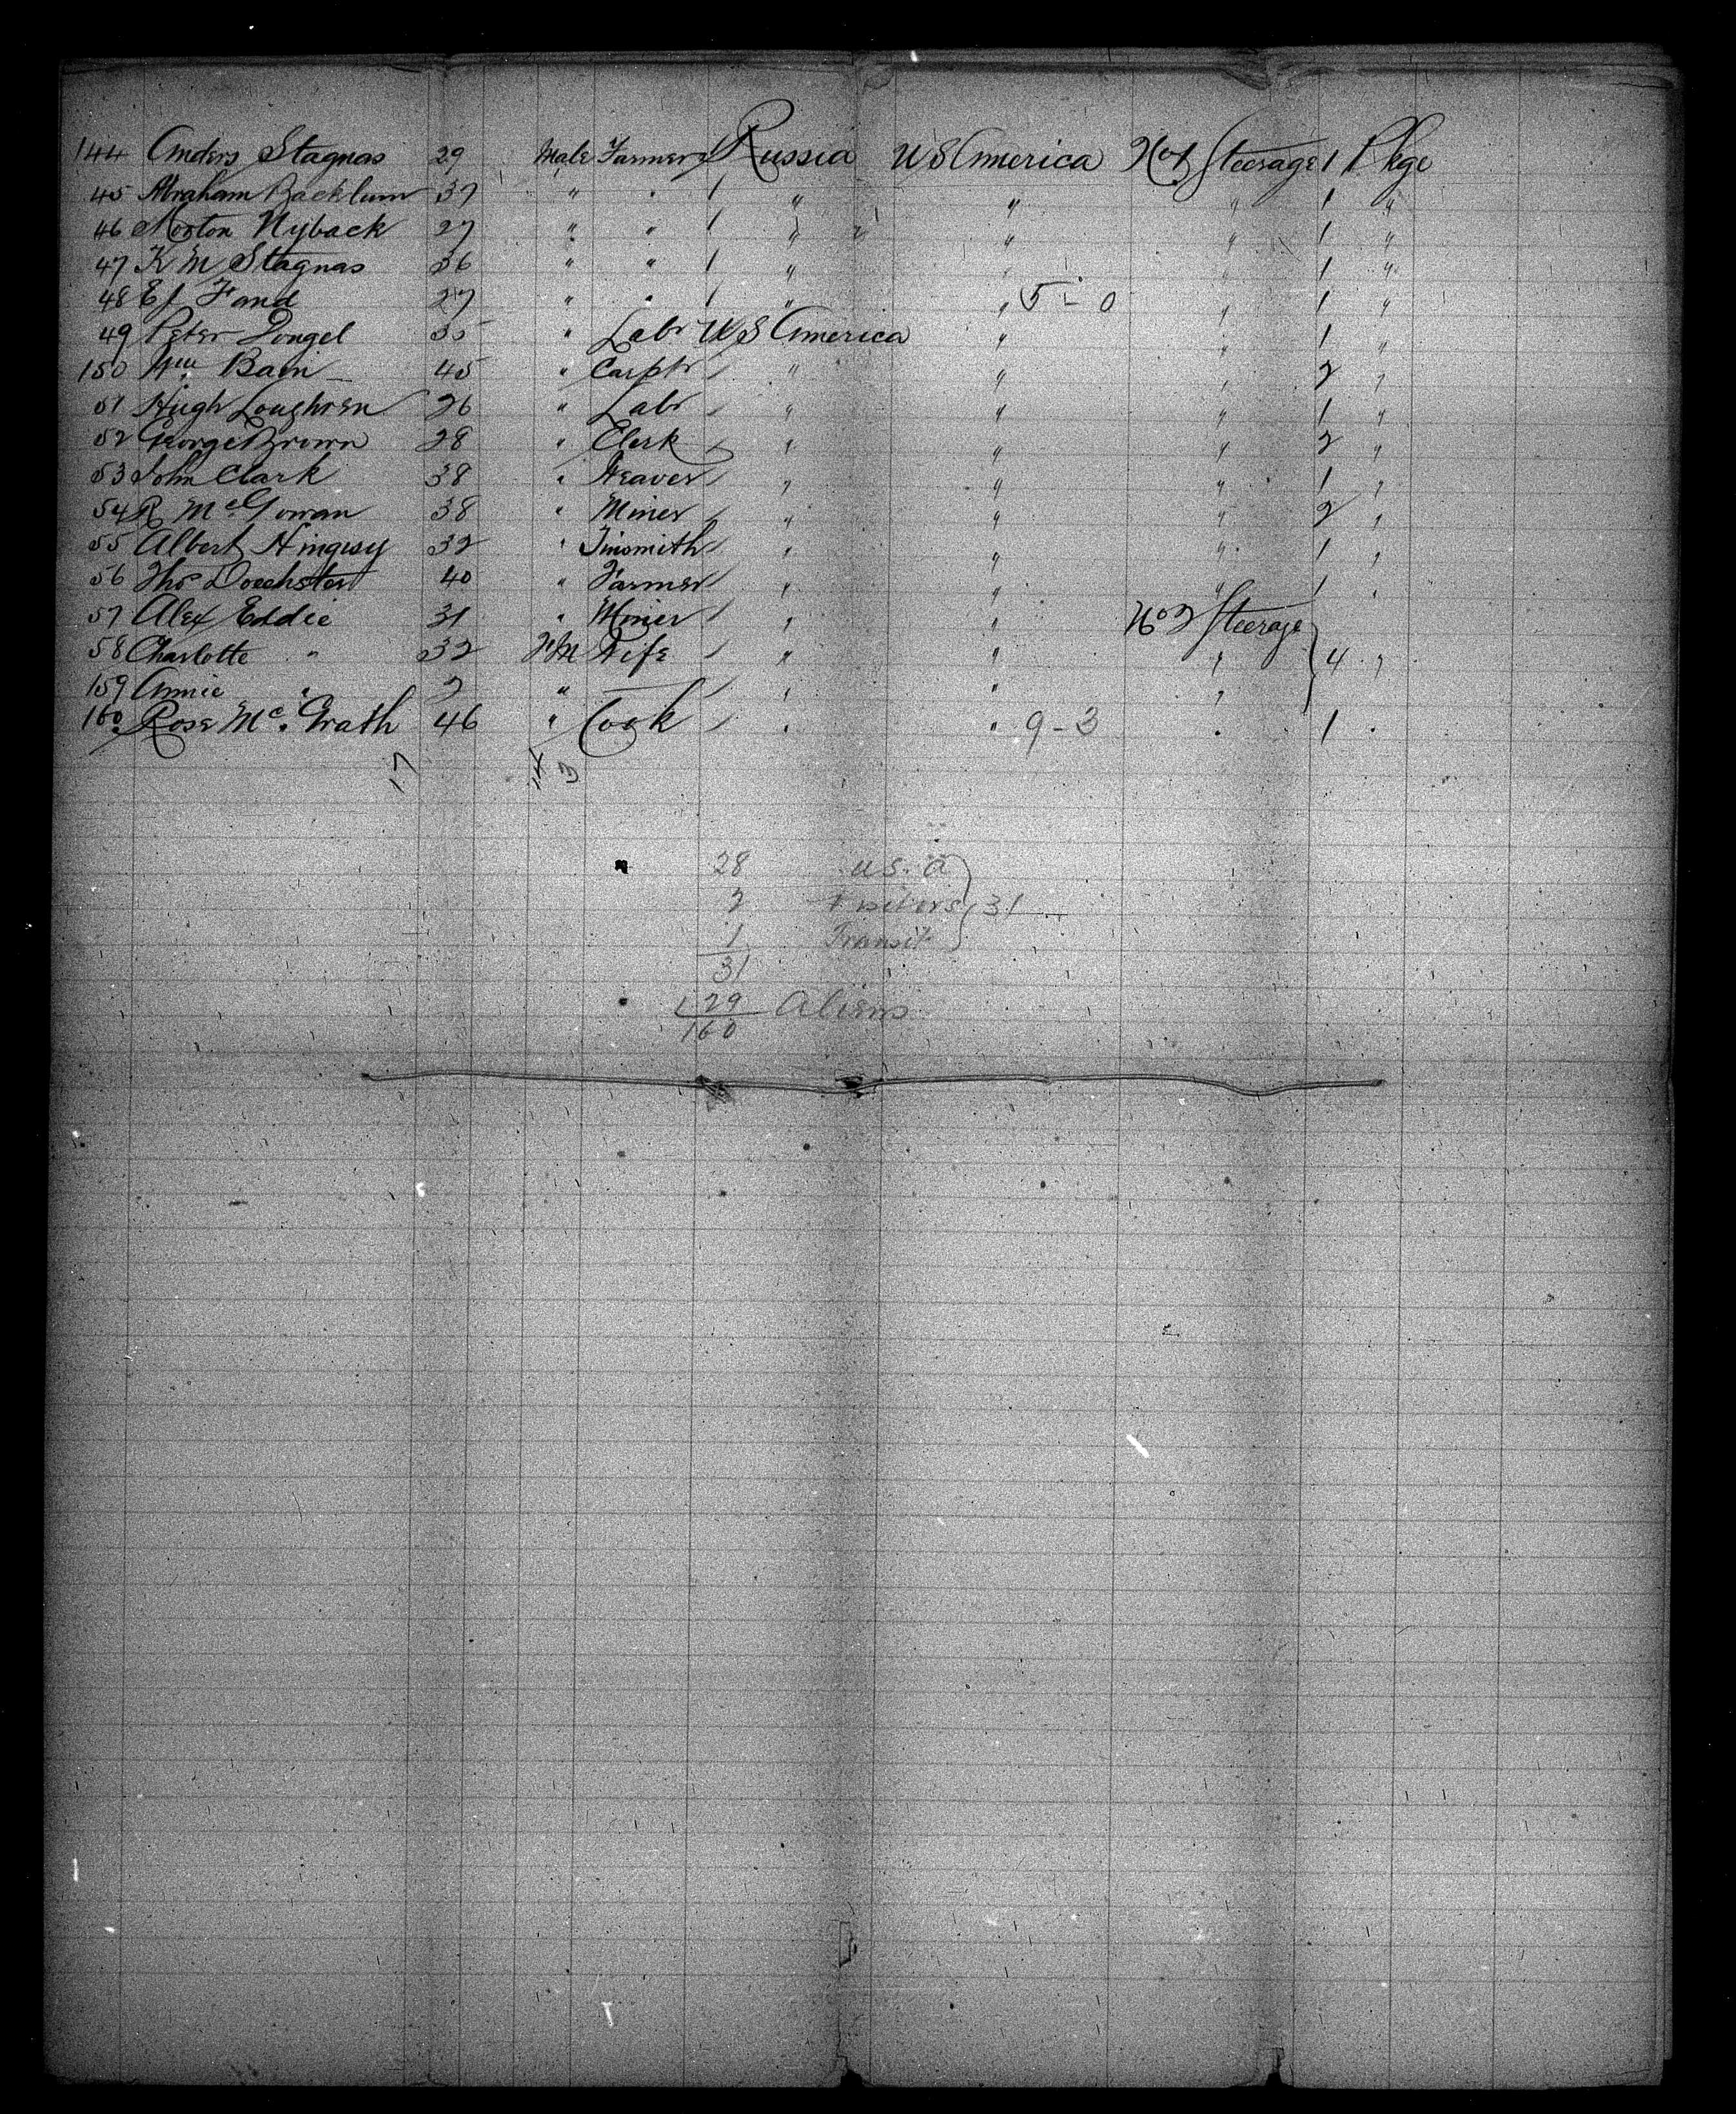 144 Anders Stagnas 29 Male Farmer / Russia U S America No 1 Steerage 1 Pkge
45 Abraham Backlum 37 " " / " " " 1 "
46 Morton Nyback 27 " " / " " " 1 "
47 K M Stagnas 36 " " / " " " 1 "
48 E J Fand 27 " " / " " 5 - 0 " 1 "
49 Peter 35 " Labr U S America " " 1 "
150 Wm Bain 45 " Carptr / " " " 2 "
51 Hugh Loughren 26 " Labr / " " " 1 "
52 George Brown 28 " Clerk / " " " 2 "
53 John Clark 38 " Weaver / " " " 1 "
54 R McGowan 38 " Miner / " " " 2 "
55 Albert 32 " Tinsmith / " " " 1 "
56 Thos 40 " Farmer / " " " 1 "
57 Alex Eddie 31 " Miner / " " No 2 Steerage
58 Charlotte " 32 Wife / " " " 4 "
159 Annie " 2 " — / " " "
160 Rose McGrath 46 " Cook / " " 9 - 3 " 1 "
17 14 3
28 U.S. A
2 Visitors 31
1 Transit
31
129 Aliens
160